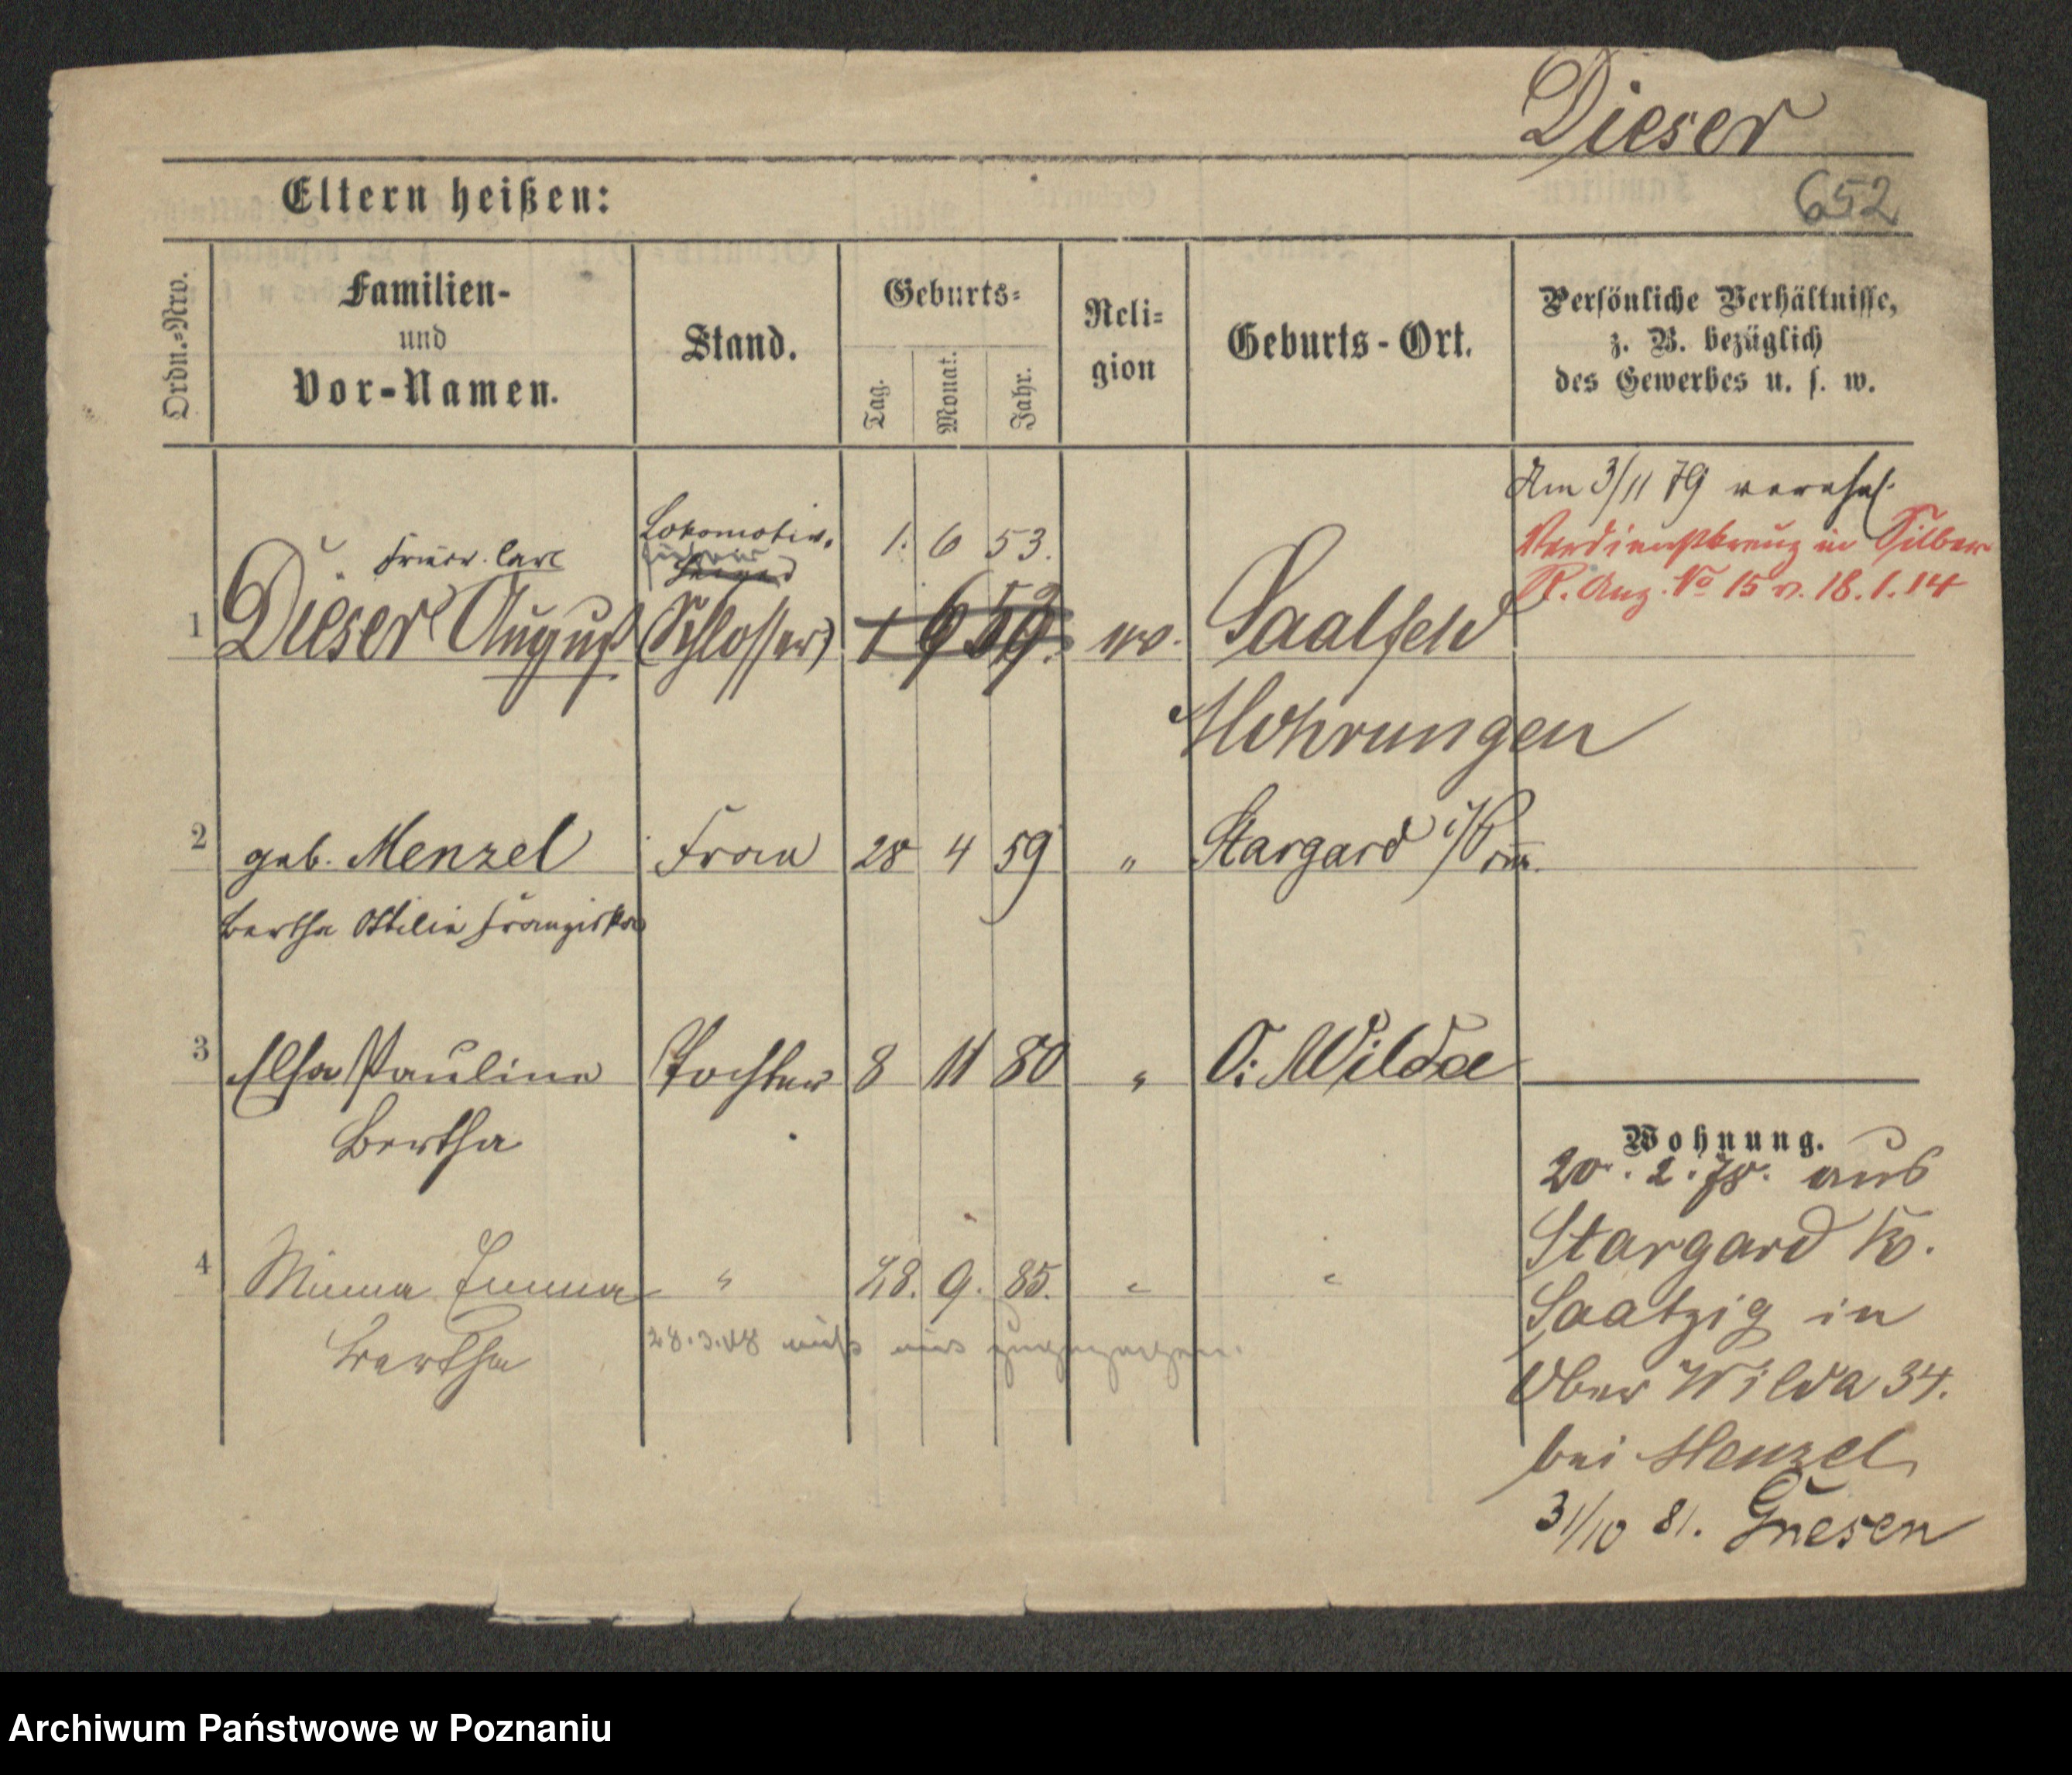 Dieser
652
Eltern heißen:
Ordn.-Nro.
Familien-
und
Vor-Namen.
Stand.
Geburts-
Tag.
Monat.
Jahr.
Reli-
gion
Geburts-Ort.
Persönliche Verhältnisse,
z. B. bezüglich
des Gewerbes u. s. w.
Am 3/11 79 verehel.
Verdienstkreuz in Silber
R. Anz. No 15 v. 18.1.14
Friedr. Carl Lokomotiv- 1. 6 53.
führer
Heizer
1 Dieser August (Schlosser) 1 6 59. ev. Saalfeld
Mohrungen
2 geb. Menzel Frau 28 4 59 " Stargard i/Pom.
Bertha Ottilie Franziska
3 Elsa Pauline Tochter 8 11 80 " O. Wilda
Bertha
4 Minna Emma " 28. 9. 85. " "
Bertha
28.3.08 nicht zugezogen.
Wohnung.
20. 2. 78. aus
Stargard Kr.
Saatzig in
Ober Wilda 34.
bei Menzel
31/10 81. Gnesen
Archiwum Państwowe w Poznaniu